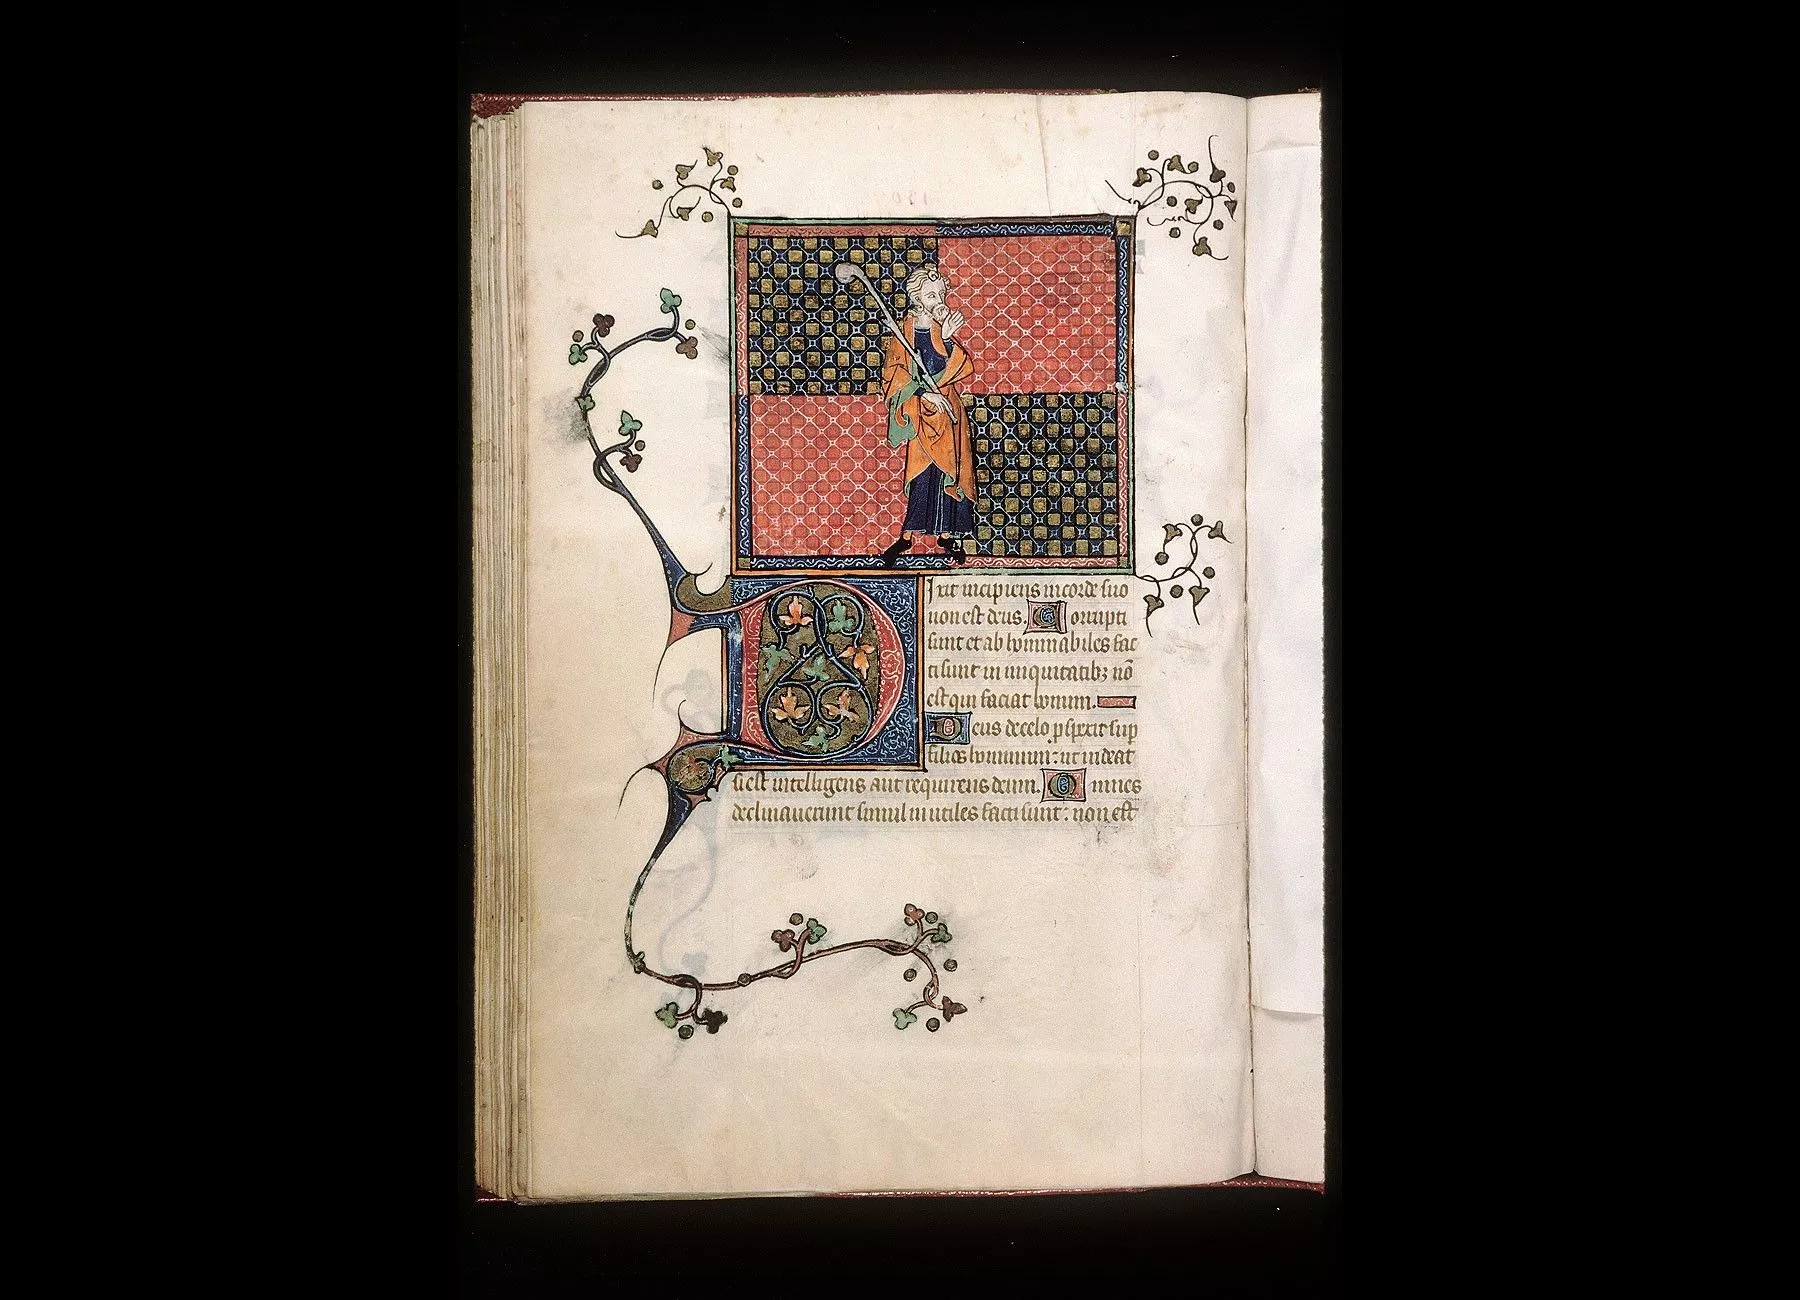 Dixit incipiens in corde suo
non est deus. Corrupti
sunt et abhominabiles fac
ti sunt in iniquitatibꝫ nō
est qui faciat bonum.
Deus de celo ꝓspexit suꝑ
filios hominum: ut uideat
si est intelligens aut requirens deum. Omnes
declinauerunt simul inutiles facti sunt: non est